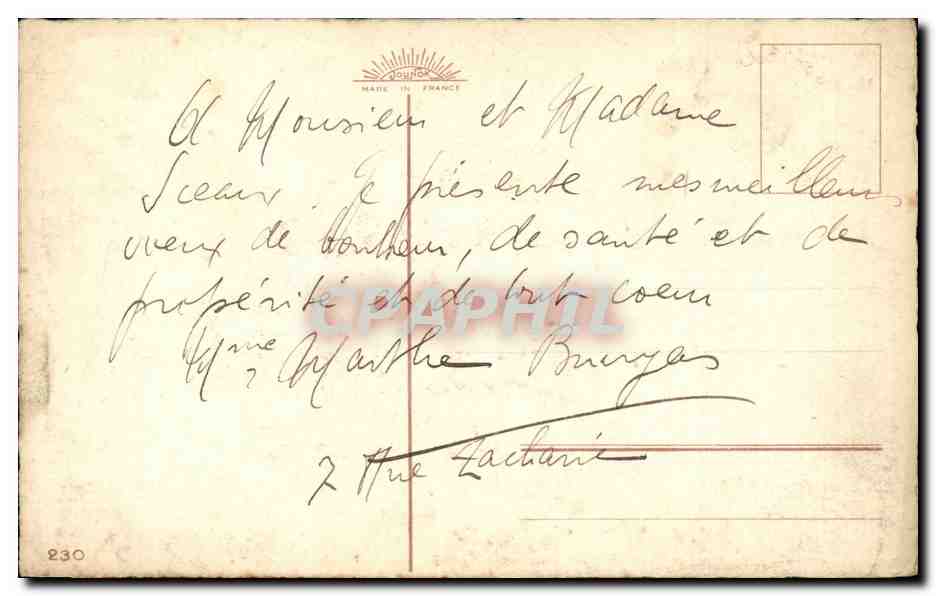 JOUNOK
MADE IN FRANCE
A Monsieur et Madame
Sceaux. Je présente mes meilleurs
vœux de bonheur, de santé et de
propérité et de tout coeur
CPAPHIL
Mme Marthe Bruyas
7 Rue Zacharie
230